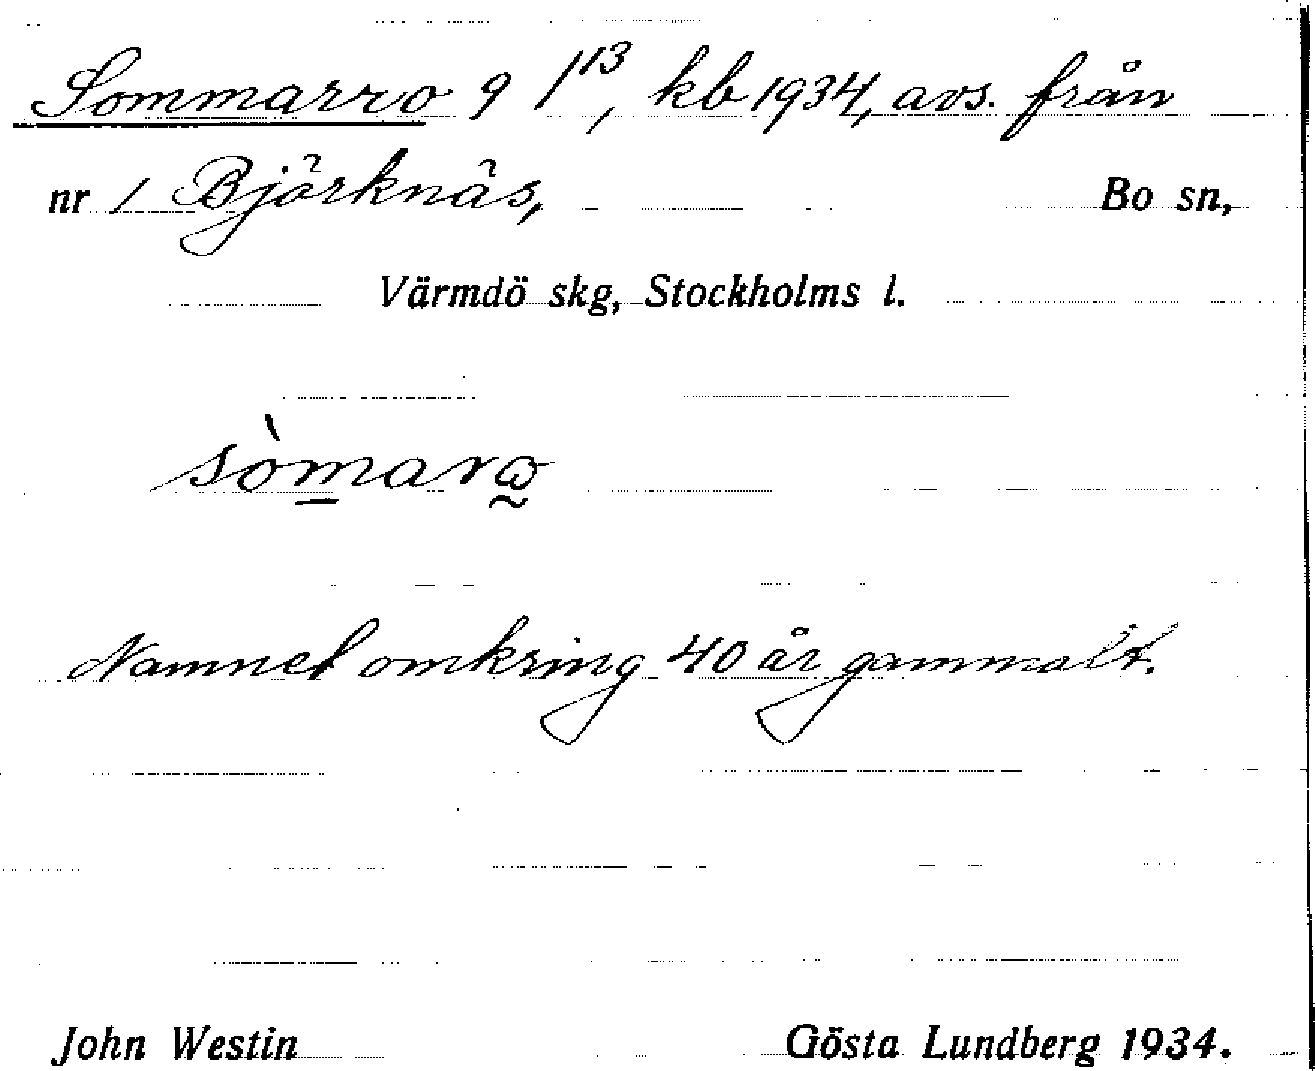 Sommarro 9 1/13, kb 1934, avs. från
nr 1 Björknäs, Bo sn,
Värmdö skg, Stockholms l.
sòmarω
Namnet omkring 40 år gammalt.
John Westin Gösta Lundberg 1934.